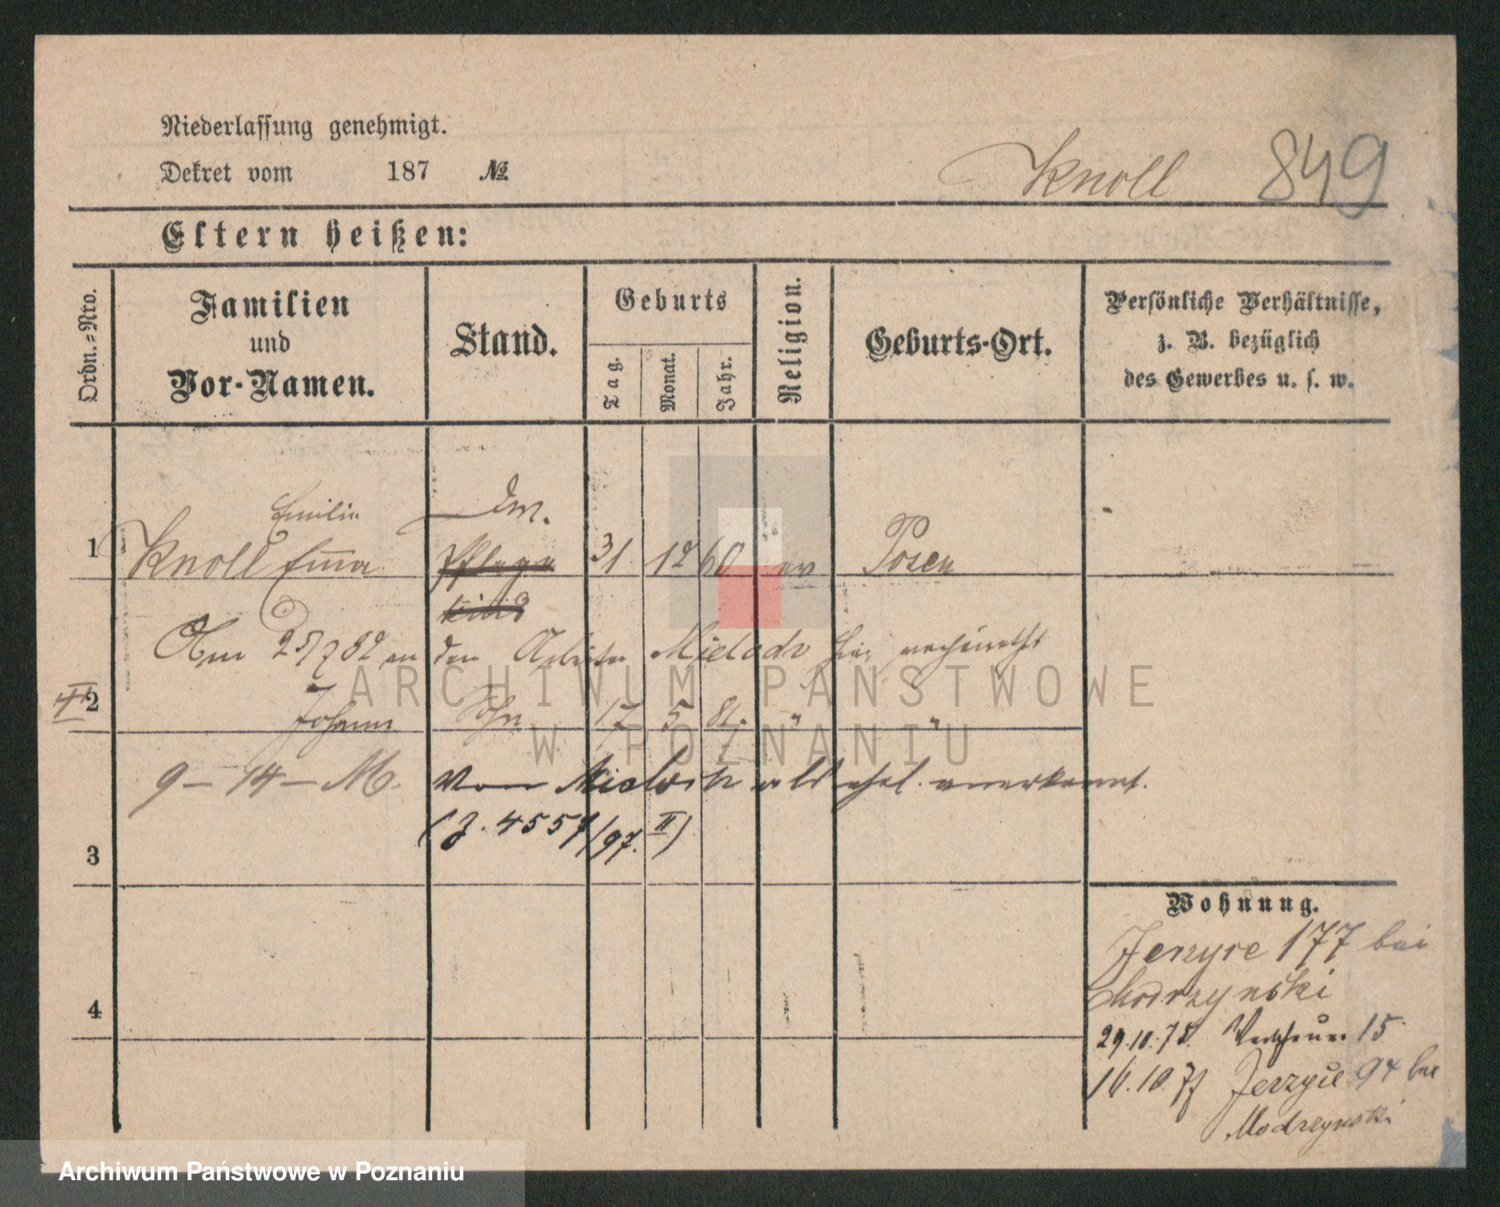 Niederlassung genehmigt.
Dekret vom 187 №
Knoll 849
Eltern heißen:
Ordn.-Nro.
Familien
und
Vor-Namen.
Stand.
Geburts
Tag.
Monat.
Jahr.
Religion.
Geburts-Ort.
Persönliche Verhältnisse,
z. B. bezüglich
des Gewerbes u. s. w.
Emilie
1 Knoll Emma
Pflege
kind
31 12 60 ev Posen
Am 25/7 82 an den Arbeiter hier verheirathet
2 Johann Sohn 17 5 81. " "
9 - 14 - M. von als ehel. anerkannt.
(J. 4557/97. II)
3
4
Wohnung.
Jerzyce 177 bei
Modrzynski
29.10.75. 15
16.10.77 Jerzyce 94 bei
Modrzynski
ARCHIWUM PAŃSTWOWE
W POZNANIU
Archiwum Państwowe w Poznaniu